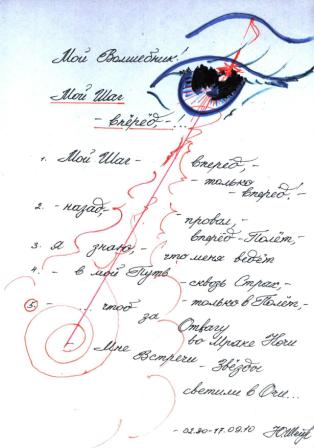 Мой Волшебник!
Мой Шаг
- вперёд,-...!
1. Мой Шаг - вперед,-
- только - вперед!-
2. - назад,- - провал,-
вперёд - Полёт,-
3. Я знаю,- что меня ведёт
4. - в мой Путь - сквозь Страх,-
5. - ... чтоб - только в Полёт,-
за Отвагу
- Мне во Мраке Ночи
Встречи - Звёзды
светили в Очи...
- 02.20-17.09.10